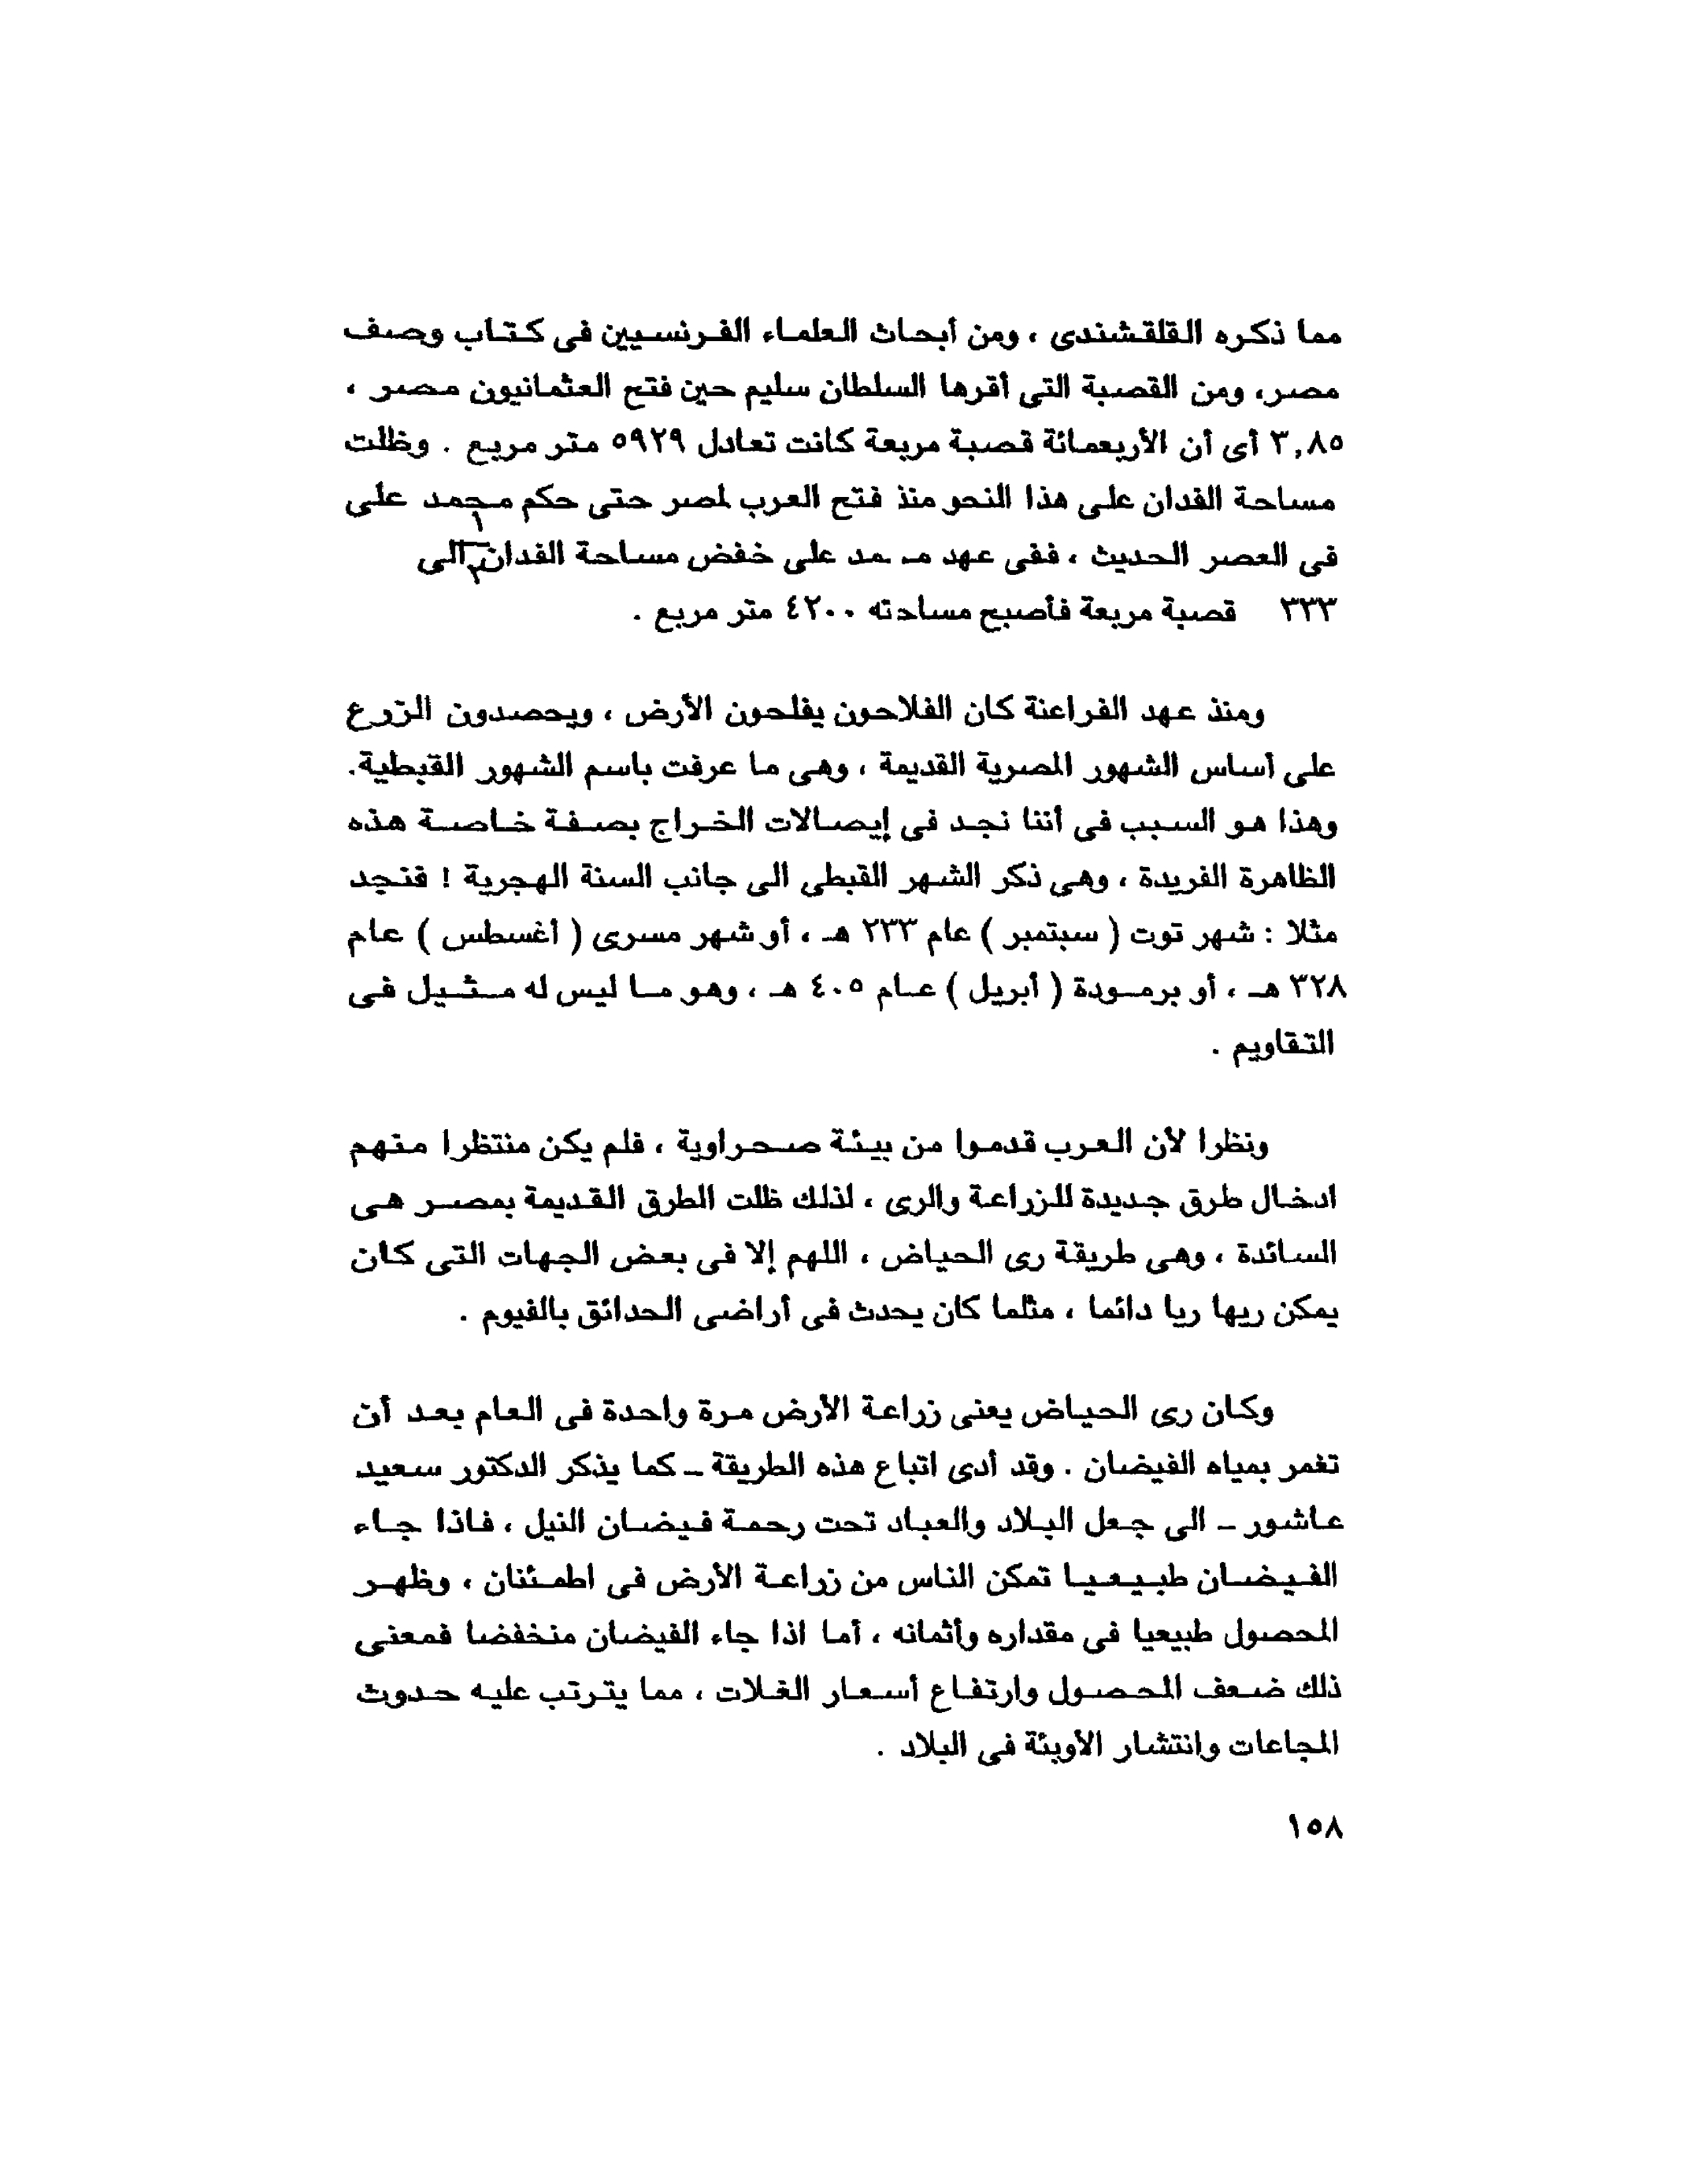 مما ذكره القلقشندى ، ومن أبحاث العلماء الفرنسيين فى كتاب وصف
مصر، ومن القصبة التى أقرها السلطان سليم حين فتح العثمانيون مصر ،
٣,٨٥ أى أن الأربعمائة قصبة مربعة كانت تعادل ٥٩٢٩ متر مربع . وظلت
مساحة الفدان على هذا النحو منذ فتح العرب لمصر حتى حكم محمد على
فى العصر الحديث ، ففى عهد محمد على خفض مساحة الفدان الى
٣٣٣ ١/٣ قصبة مربعة فأصبح مساحته ٤٢٠٠ متر مربع .
ومنذ عهد الفراعنة كان الفلاحون يفلحون الأرض ، ويحصدون الزرع
على أساس الشهور المصرية القديمة ، وهى ما عرفت باسم الشهور القبطية.
وهذا هو السبب فى أننا نجد فى إيصالات الخراج بصفة خاصة هذه
الظاهرة الفريدة ، وهى ذكر الشهر القبطى الى جانب السنة الهجرية ! فنجد
مثلا : شهر توت ( سبتمبر ) عام ٢٣٣ هـ ، أو شهر مسرى ( أغسطس ) عام
٣٢٨ هـ ، أو برمودة ( أبريل ) عام ٤٠٥ هـ ، وهو ما ليس له مثيل فى
التقاويم .
ونظرا لأن العرب قدموا من بيئة صحراوية ، فلم يكن منتظرا منهم
ادخال طرق جديدة للزراعة والرى ، لذلك ظلت الطرق القديمة بمصر هى
السائدة ، وهى طريقة رى الحياض ، اللهم إلا فى بعض الجهات التى كان
يمكن ريها ريا دائما ، مثلما كان يحدث فى أراضى الحدائق بالفيوم .
وكان رى الحياض يعنى زراعة الأرض مرة واحدة فى العام بعد أن
تغمر بمياه الفيضان . وقد أدى اتباع هذه الطريقة - كما يذكر الدكتور سعيد
عاشور - الى جعل البلاد والعباد تحت رحمة فيضان النيل ، فاذا جاء
الفيضان طبيعيا تمكن الناس من زراعة الأرض فى اطمئنان ، وظهر
المحصول طبيعيا فى مقداره وأثمانه ، أما اذا جاء الفيضان منخفضا فمعنى
ذلك ضعف المحصول وارتفاع أسعار الغلات ، مما يترتب عليه حدوث
المجاعات وانتشار الأوبئة فى البلاد .
١٥٨